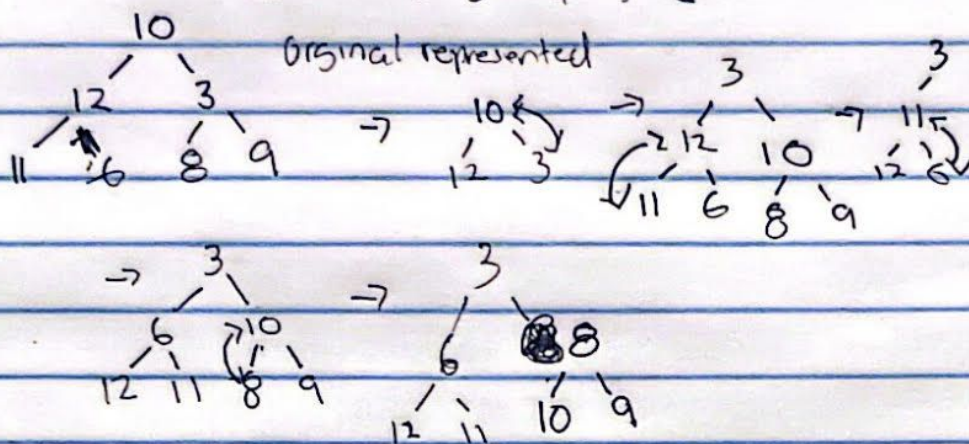 10
Orginal represented
12 3
11 6 8 9
→ 10
12 3
→ 3
12 10
11 6 8 9
→ 3
11
12 6
→ 3
6 10
12 11 8 9
→ 3
6 8
12 11 10 9